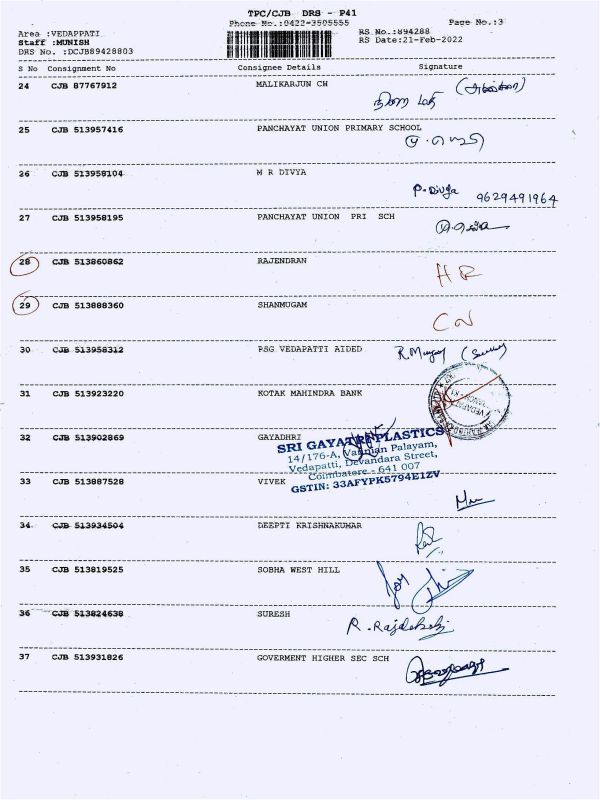 TPC/CJB DRS - P41
Phone No.:0422-3505555 Page No.:3
Area :VEDAPPATI RS No.:894288
Staff :MUNISH RS Date:21-Feb-2022
DRS No. :DCJB89428803
S No Consignment No Consignee Details Signature
24 CJB 87767912 MALIKARJUN CH
25 CJB 513957416 PANCHAYAT UNION PRIMARY SCHOOL
26 CJB 513958104 M R DIVYA
P. Divya 9629491964
27 CJB 513958195 PANCHAYAT UNION PRI SCH
28 CJB 513860862 RAJENDRAN
29 CJB 513888360 SHANMUGAM
CN
30 CJB 513958312 PSG VEDAPATTI AIDED
31 CJB 513923220 KOTAK MAHINDRA BANK
32 CJB 513902869 GAYADHRI
SRI GAYATRI PLASTICS
14/176-A, Vannian Palayam,
Vedapatti, Devandara Street,
Coimbatore - 641 007
GSTIN: 33AFYPK5794E1ZV
33 CJB 513887528 VIVEK
34 CJB 513934504 DEEPTI KRISHNAKUMAR
35 CJB 513819525 SOBHA WEST HILL
Joy
36 CJB 513824638 SURESH
37 CJB 513931826 GOVERMENT HIGHER SEC SCH